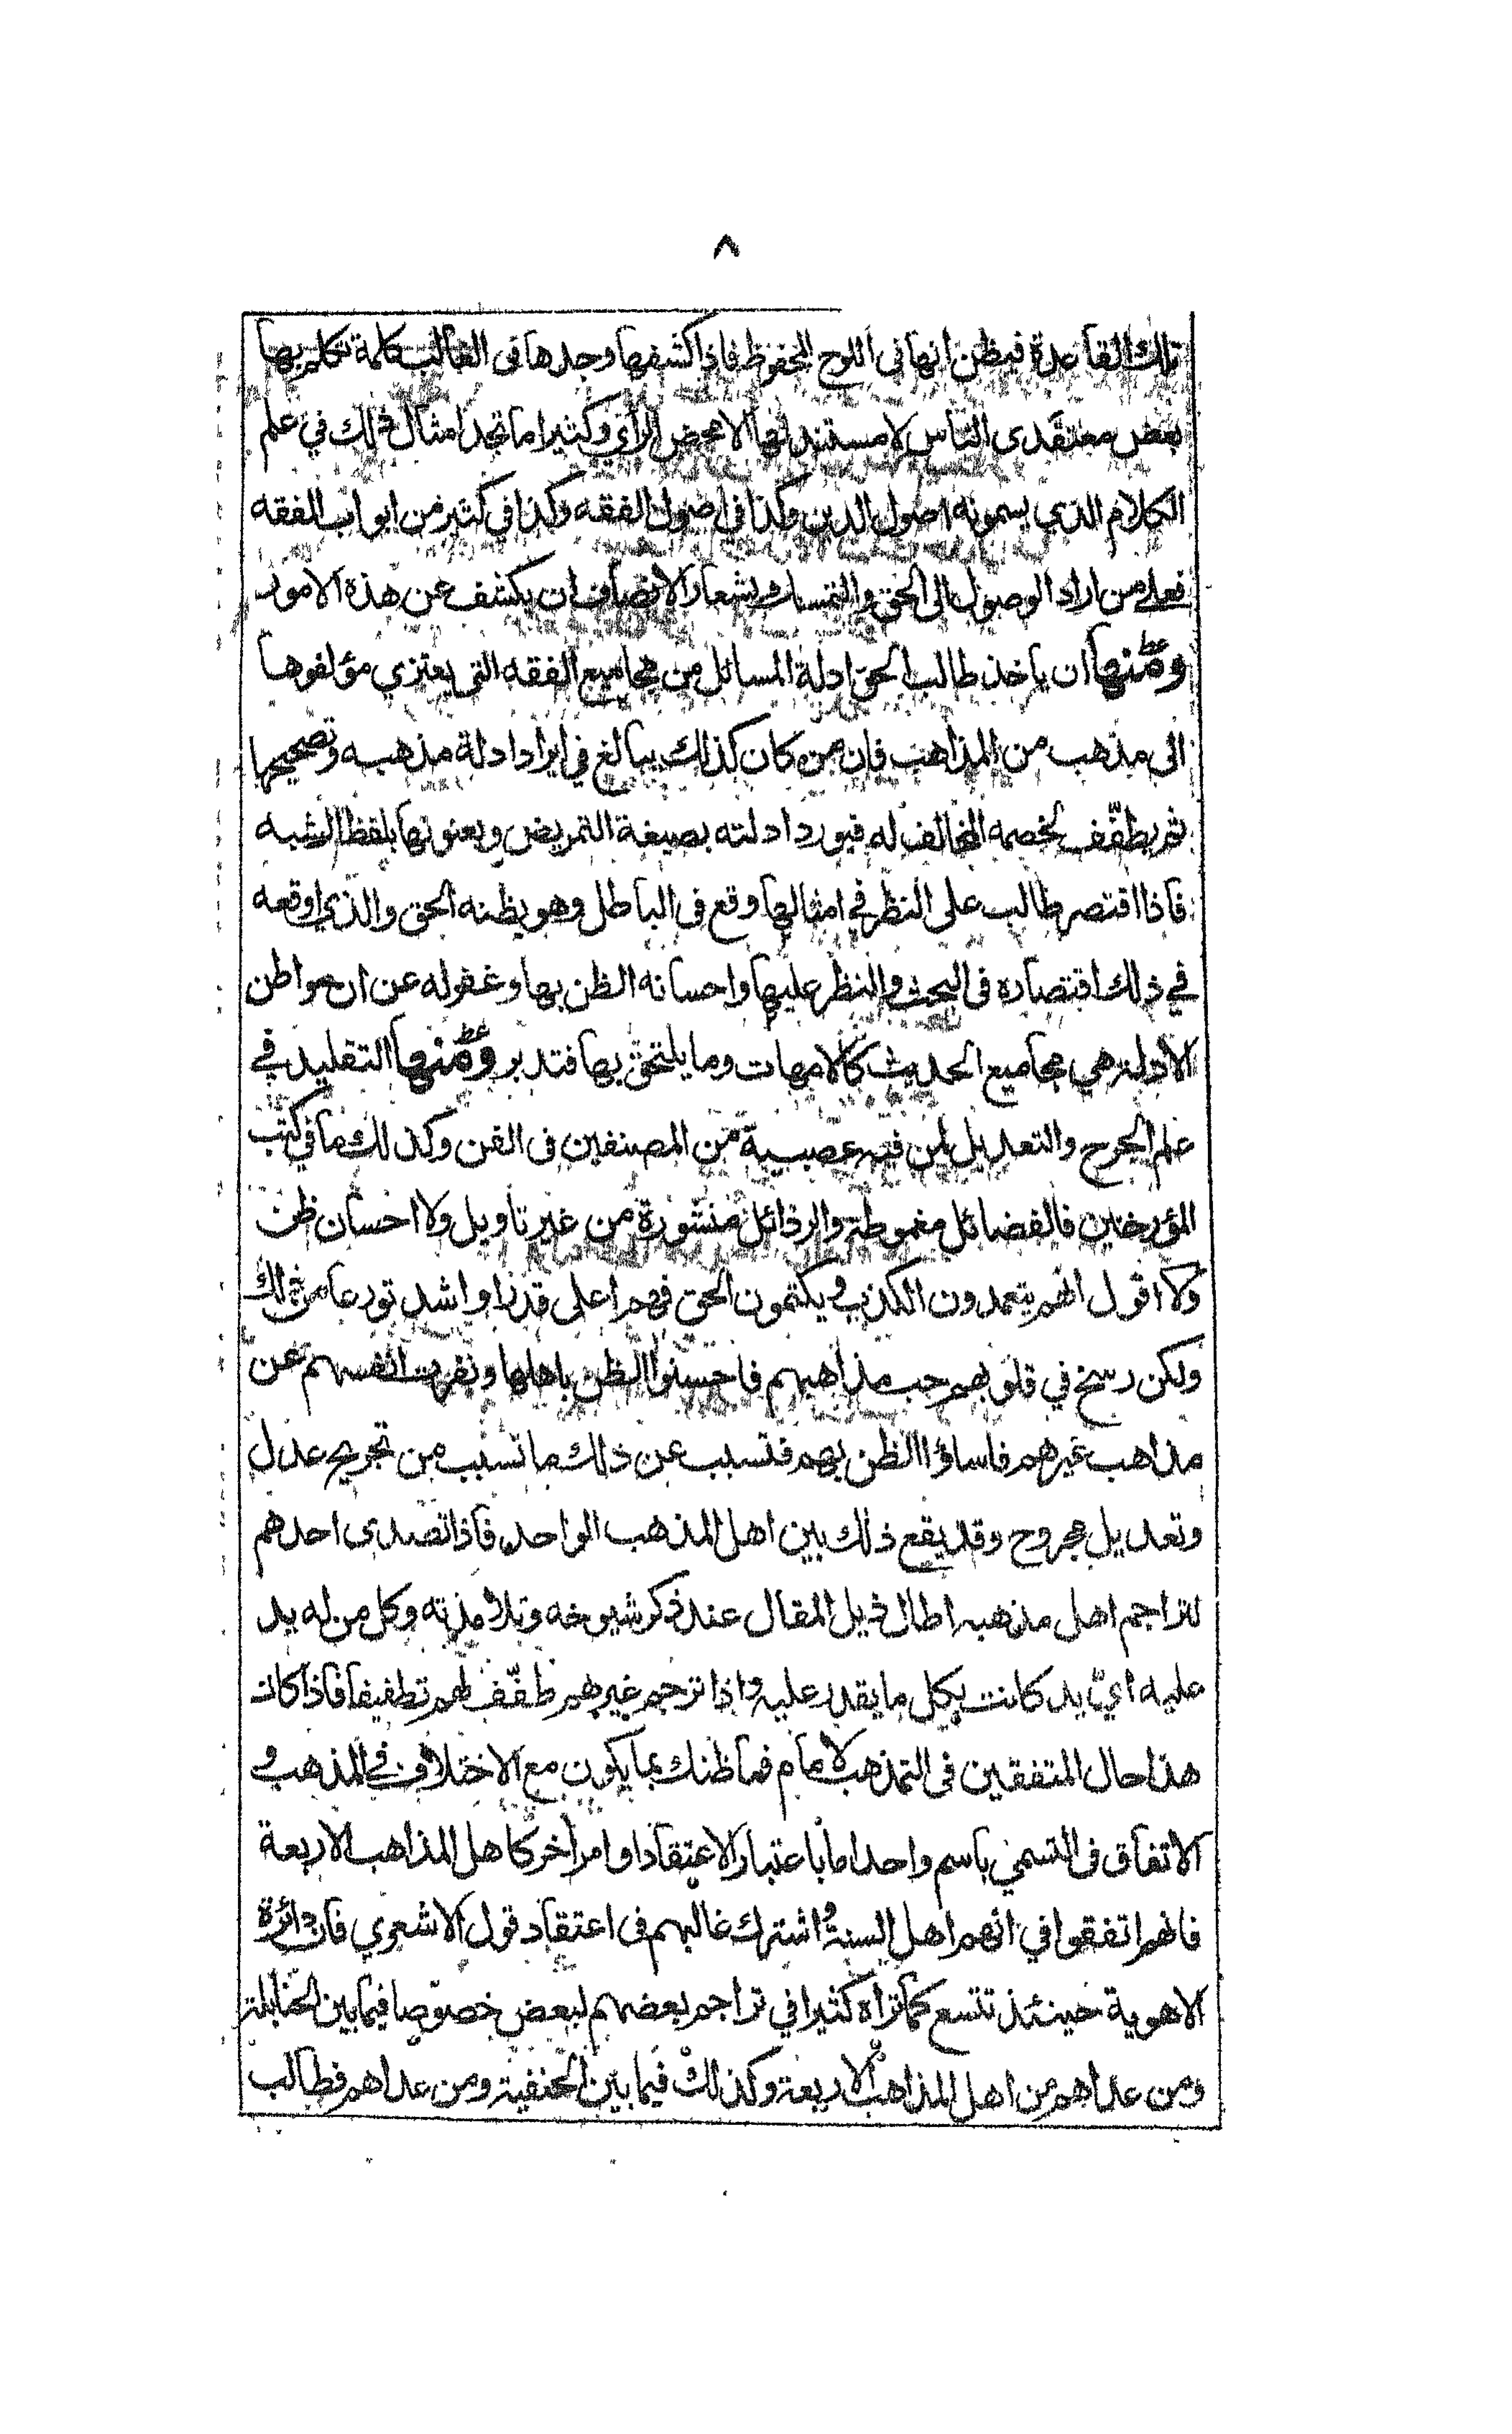 ٨
تلك القاعدة فيظن انها فى اللوح المحفوظ فاذا كشفها وجدها فى الغالب كلمة تكلم بها
بعض معتقدى الناس لا مستند لها الا محض الرأي وكثيرا ما تجد امثال ذلك في علم
الكلام الذي يسمونه اصول الدين وكذا فى اصول الفقه وكذا في كثير من ابواب الفقه
فعلى من اراد الوصول الى الحق والتمسك بشعار الانصاف ان يكشف عن هذه الامور
ومنها ان ياخذ طالب الحق ادلة المسائل من مجاميع الفقه التى يعتزي مؤلفوها
الى مذهب من المذاهب فان من كان كذلك يبالغ في ايراد ادلة مذهبه وتصحيحها
ثم يطفّف لخصمه المخالف له فيورد ادلته بصيغة التمريض ويعنونها بلفظ الشبه
فاذا اقتصر طالب على النظر في امثالها وقع فى الباطل وهو يظنه الحق والذي اوقعه
في ذلك اقتصاره فى البحث والنظر عليها واحسانه الظن بها وغفوله عن ان مواطن
الأدلة هي مجاميع الحديث كالامهات وما يلتحق بها فتدبر ومنها التقليد في
علم الجرح والتعديل لمن فيه عصبية من المصنفين فى الفن وكذلك ما في كتب
المؤرخين فالفضائل مغموطة والرذائل منشورة من غير تاويل ولا احسان ظن
ولا اقول انهم يتعمدون الكذب ويكتمون الحق فهم اعلى قدرا واشد تورعا من ذلك
ولكن رسخ في قلوبهم حب مذاهبهم فاحسنوا الظن باهلها ونفرت انفسهم عن
مذاهب غيرهم فاساؤا الظن بهم فتسبب عن ذلك ما تسبب من تجريح عدل
وتعديل مجروح وقد يقع ذلك بين اهل المذهب الواحد فاذا تصدى احدهم
لتراجم اهل مذهبه اطال ذيل المقال عند ذكر شيوخه وتلامذته وكل من له يد
عليه ايّ يد كانت بكل ما يقدر عليه واذا ترجم غيرهم طفّف لهم تطفيفا فاذا كان
هذا حال المتفقين فى التمذهب لامام فما ظنك بما يكون مع الاختلاف في المذهب و
الاتفاق فى التسمي باسم واحد اما باعتبار الاعتقاد او امر اخر كاهل المذاهب الاربعة
فانهم اتفقوا في انهم اهل السنة واشترك غالبهم فى اعتقاد قول الاشعري فان دائرة
الاهوية حينئذ تتسع كما تراه كثيرا في تراجم بعضهم لبعض خصوصا فيما بين الحنابلة
ومن عداهم من اهل المذاهب الاربعة وكذلك فيما بين الحنفية ومن عداهم فطالب